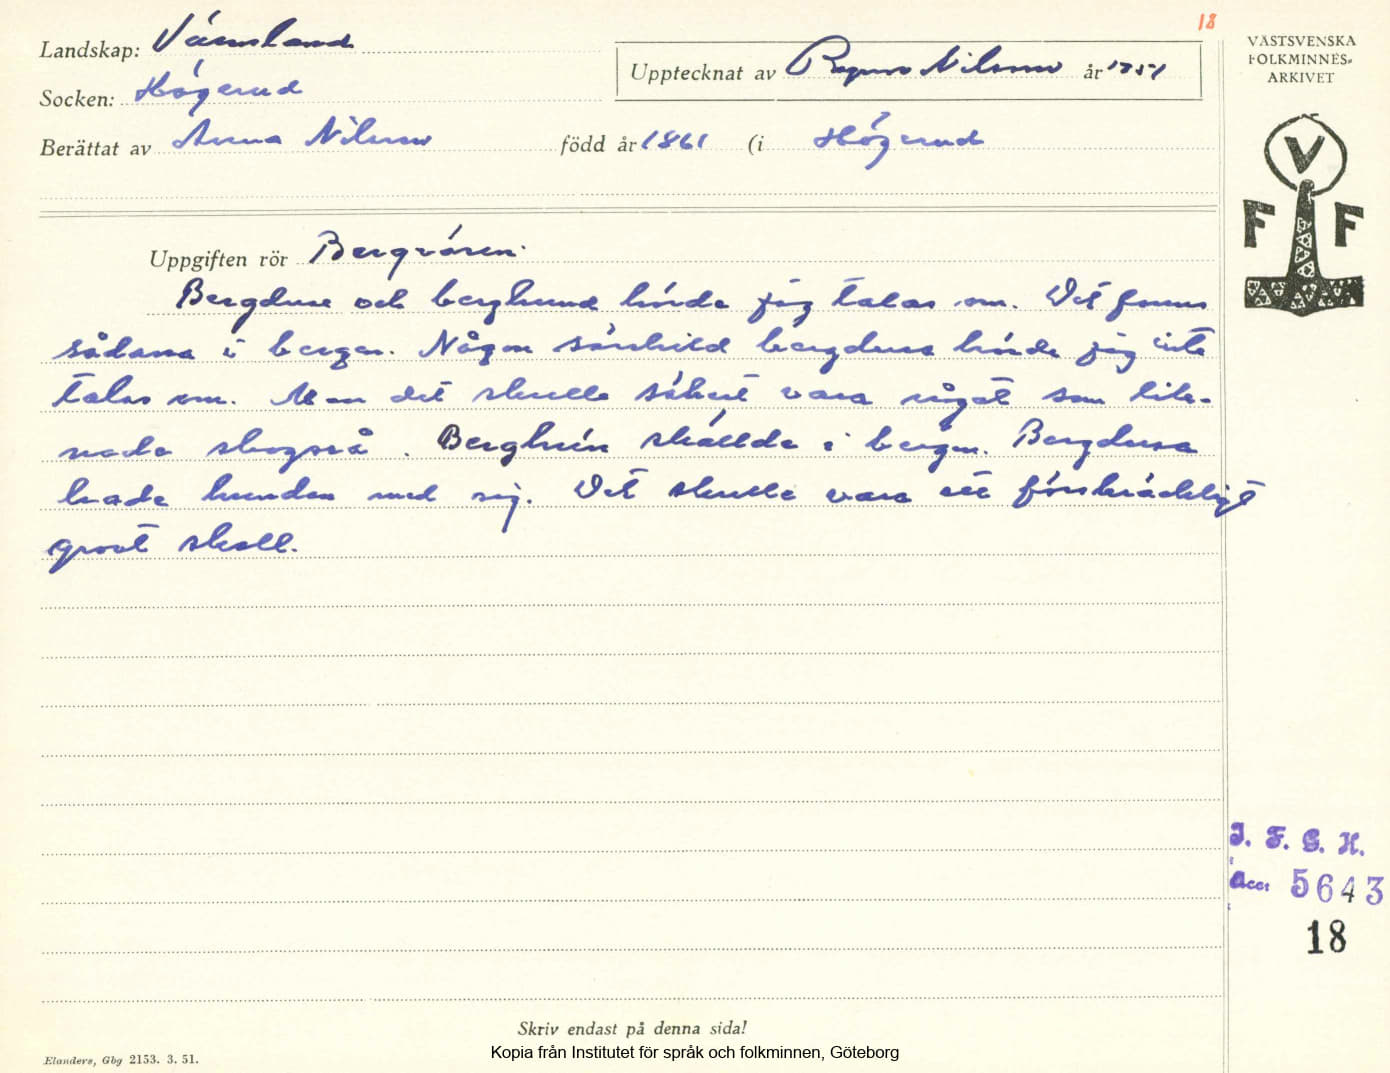 18
Landskap: Värmland
Socken: Högerud
Upptecknat av Ragnar Nilsson år 1951
Berättat av Anna Nilsson född år 1861 (i Högerud
VÄSTSVENSKA
FOLKMINNES-
ARKIVET
V
F F
Uppgiften rör Bergväsen
Bergdusa och berghund hörde jag talas om. Det fanns
sådana i bergen. Någon särskild bergdusa hörde jag inte
talas om. Men det skulle säkert vara något som likn-
nade skogsrå. Berghun skällde i bergen. Bergdusa
hade hunden med sig. Det skulle vara ett förskräckligt
grovt skall.
I. F. G. H.
Acc: 5643
18
Skriv endast på denna sida!
Kopia från Institutet för språk och folkminnen, Göteborg
Elanders, Gbg 2153. 3. 51.